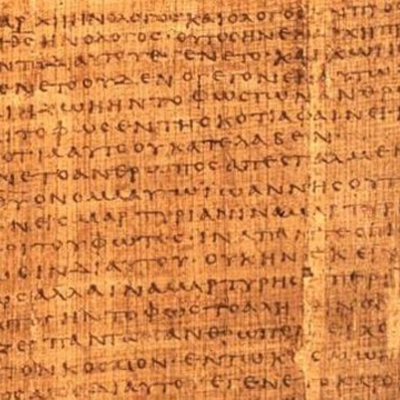 ΑΡΧΗΗΝΟΛΟΓΟΣΚΑΙΟΛΟΓΟΣ
ΘΣΗΝΟΛΟΓΟΣ·ΟΥΤΟΣΗΝΕΝΑΡΧΗΠ
ΝΤΑΔΙΑΥΤΟΥΕΓΕΝΕΤΟ·ΚΑΙΧΩΡΙ
ΕΝΕΤΟΟΥΔΕΝΟΓΕΓΟΝΕΝΕΝΑΥΤΩ
ΖΩΗΗΝΤΟΦΩΣΤΩΝΑΝΘΡΩ
ΤΟΦΩΣΕΝΤΗΣΚΟΤΙΑΦΑΙΝΕΙ
ΟΤΙΑΑΥΤΟΟΥΚΑΤΕΛΑΒΕΝ
ΝΕΤΟΑΝΘΡΩΠΟΣΑΠΕΣΤΑΛΜΕΝ
ΘΥΟΝΟΜΑΑΥΤΩΙΩΑΝΝΗΣΟΥΤ
ΘΕΝΕΙΣΜΑΡΤΥΡΙΑΝΙΝΑΜΑΡΤΥΡΗ
ΡΙΤΟΥΦΩΤΟΣ·ΙΝΑΠΑΝΤΕΣΠΙΣ
ΩΣΙΝΔΙΑΥΤΟΥ·ΟΥΚΗΝΕΚΕΙ
ΩΣΑΛΛΑΙΝΑΜΑΡΤΥΡΗΣΗΠΕΡΙ
ΗΝΤΟΦΩΣΤΟΑΛΗΘΙΝΟΝ
ΖΕΙΠΑΝΤΑΑΝΘΡΩΠΟΝΕΡΧΟ
ΤΟΝΚΟΣΜΟΝ·ΕΝΤΩΚΟΣΜΩΗΝ
ΟΣΔΙΑΥΤΟΥΕΓΕΝΕΤΟ